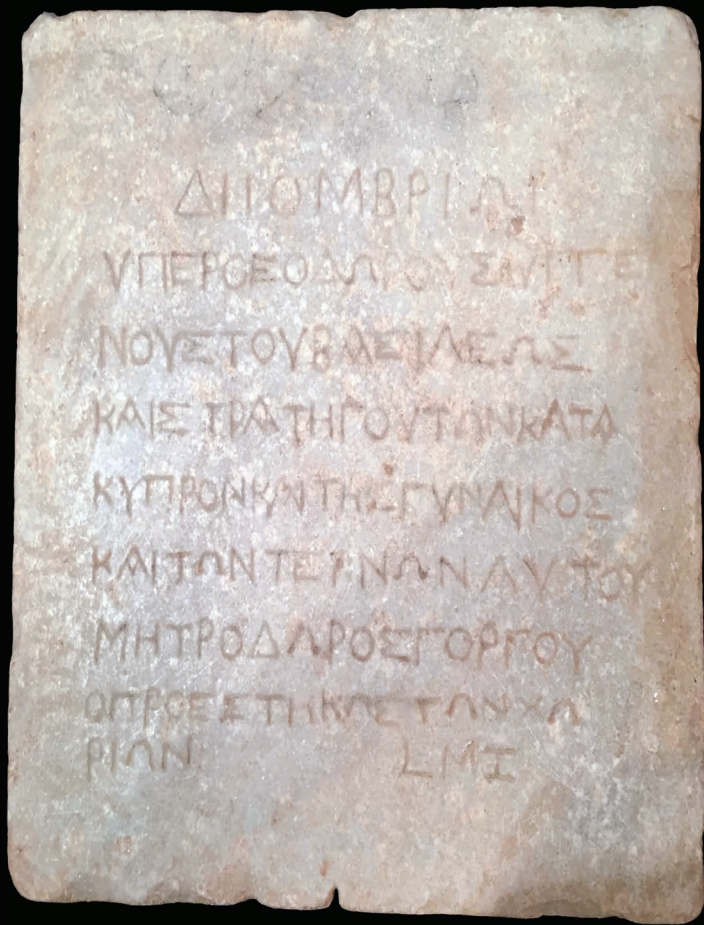 ΔΙΙΟΜΒΡΙΩΙ
ΥΠΕΡΘΕΟΔΩΡΟΥΣΥΓΓΕ
ΝΟΥΣΤΟΥΒΑΣΙΛΕΩΣ
ΚΑΙΣΤΡΑΤΗΓΟΥΤΩΝΚΑΤΑ
ΚΥΠΡΟΝΚΑΙΤΗΣΓΥΝΑΙΚΟΣ
ΚΑΙΤΩΝΤΕΚΝΩΝΑΥΤΟΥ
ΜΗΤΡΟΔΩΡΟΣΓΟΡΓΟΥ
ΟΠΡΟΕΣΤΗΚΩΣΤΩΝΧΩ
ΡΙΩΝ LΜΙ